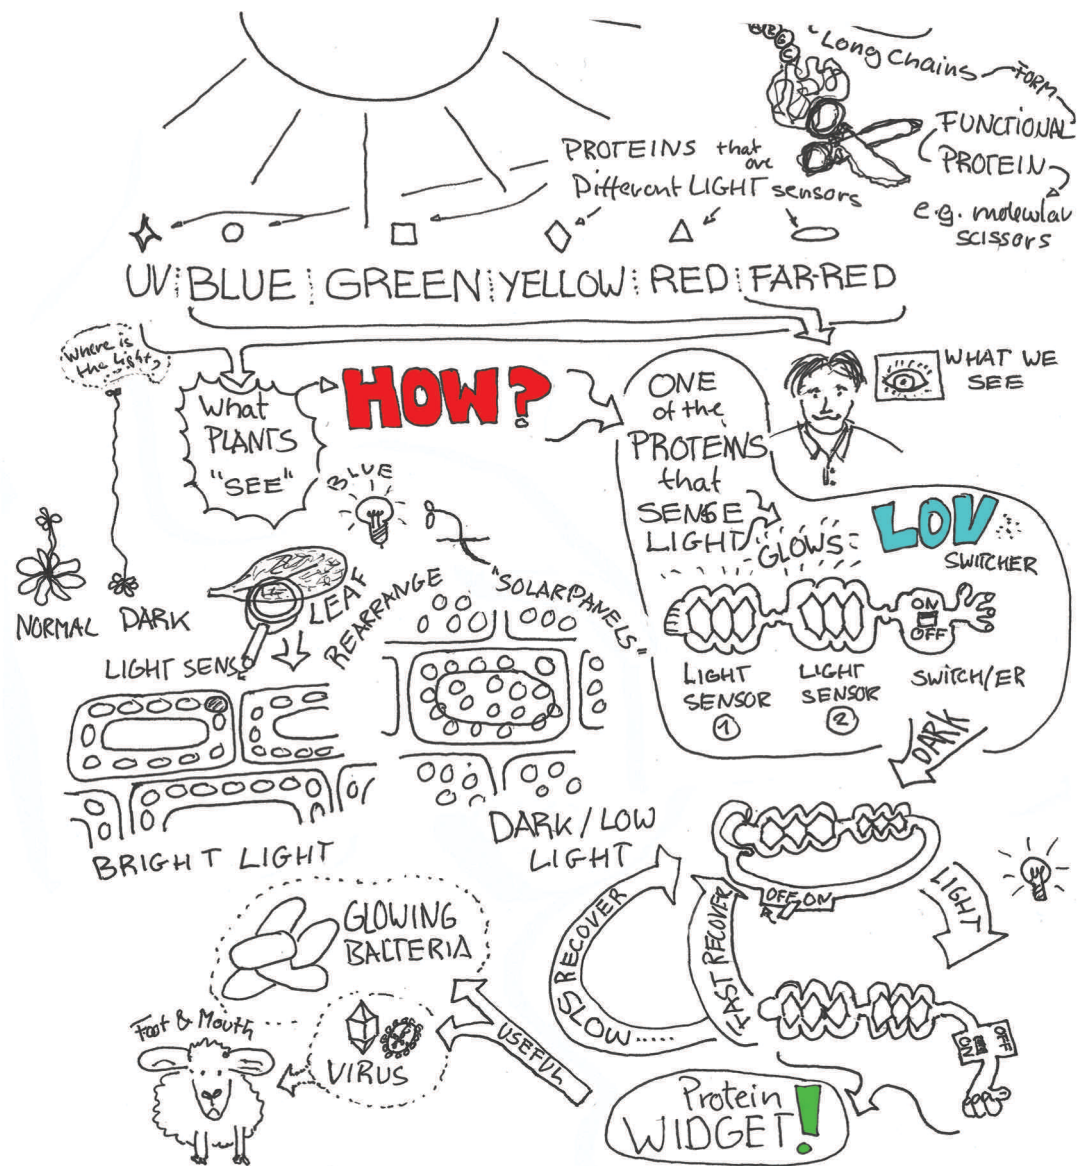 A B G C
Long Chains
FORM
FUNCTIONAL
PROTEIN
e.g. molecular
SCISSORS
PROTEINS that
are
Different LIGHT sensors
UV BLUE GREEN YELLOW RED FAR-RED
Where is
the light?
What
PLANTS
"SEE"
HOW?
WHAT WE
SEE
ONE
of the
PROTEINS
that
SENSE
LIGHT
GLOWS
LOV
SWITCHER
ON
OFF
LIGHT
SENSOR
1
LIGHT
SENSOR
2
SWITCH/ER
NORMAL
DARK
BLUE
LEAF
LIGHT SENS
REARRANGE
"SOLAR PANELS"
BRIGHT LIGHT
DARK/LOW
LIGHT
DARK
OFF ON
LIGHT
SLOW..... RECOVER
FAST RECOVER
ON OFF
GLOWING
BACTERIA
VIRUS
Foot & Mouth
USEFUL
Protein
WIDGET!